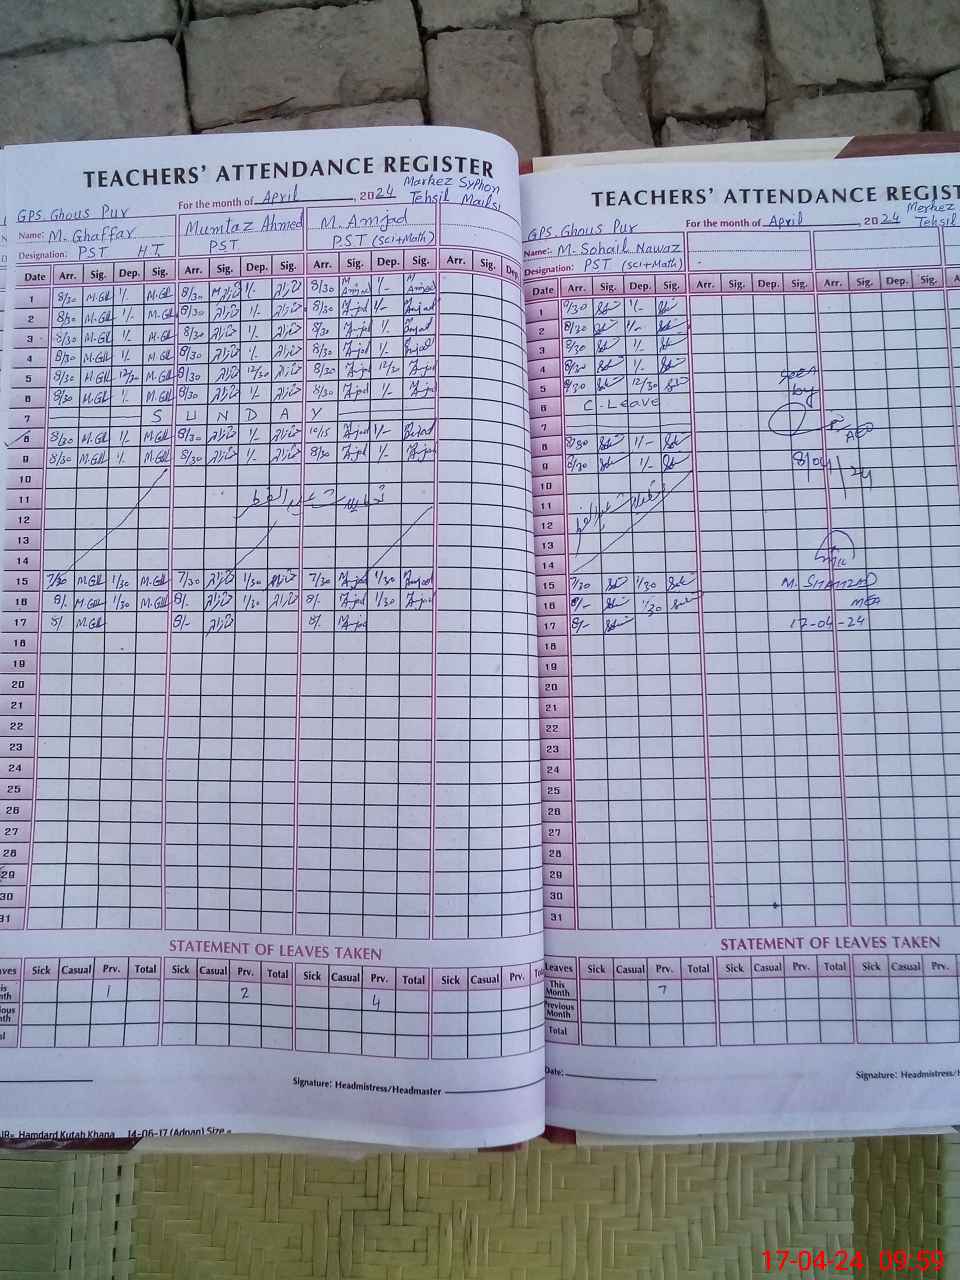 TEACHERS' ATTENDANCE REGISTER
For the month of April, 2024 Markez Syphon
Tehsil Mailsi
GPS. Ghous Pur
Name: M. Ghaffar Mumtaz Ahmed M. Amjad
Designation: PST H.T. PST PST (Sci+Math)
Date Arr. Sig. Dep. Sig. Arr. Sig. Dep. Sig. Arr. Sig. Dep. Sig. Arr. Sig. Dep
1 8/30 M.Gh 1/- M.Gh 8/30 ممتاز 1/- ممتاز 8/30 M Amjad 1/- M Amjad
2 8/30 M.Gh 1/- M.Gh 8/30 ممتاز 1/- ممتاز 8/30 Amjad 1/- Amjad
3 8/30 M.Gh 1/- M.Gh 8/30 ممتاز 1/- ممتاز 8/30 Amjad 1/- Amjad
4 8/30 M.Gh 1/- M.Gh 8/30 ممتاز 1/- ممتاز 8/30 Amjad 1/- Amjad
5 8/30 M.Gh 12/30 M.Gh 8/30 ممتاز 12/30 ممتاز 8/30 Amjad 12/30 Amjad
6 8/30 M.Gh 1/- M.Gh 8/30 ممتاز 1/- ممتاز 8/30 Amjad 1/- Amjad
7 S U N D A Y
8 8/30 M.Gh 1/- M.Gh 8/30 ممتاز 1/- ممتاز 10/15 Amjad 1/- Amjad
9 8/30 M.Gh 1/- M.Gh 8/30 ممتاز 1/- ممتاز 8/30 Amjad 1/- Amjad
10
11
12
13
14
15 7/30 M.Gh 1/30 M.Gh 7/30 ممتاز 1/30 ممتاز 7/30 Amjad 1/30 Amjad
16 8/- M.Gh 1/30 M.Gh 8/- ممتاز 1/30 ممتاز 8/- Amjad 1/30 Amjad
17 8/ M.Gh 8/- ممتاز 8/ Amjad
18
19
20
21
22
23
24
25
26
27
28
29
30
31
STATEMENT OF LEAVES TAKEN
aves Sick Casual Prv. Total Sick Casual Prv. Total Sick Casual Prv. Total Sick Casual Prv.
is nth 1 2 4
ious nth
al
Signature: Headmistress/Headmaster
Hamdard Kutab Khana 14-06-17 (Adnan) Size
TEACHERS' ATTENDANCE REGIST
For the month of April 2024 Merkez
Tehsil
GPS. Ghous Pur
Name: M. Sohail Nawaz
Designation: PST (Sci+Math)
Date Arr. Sig. Dep. Sig. Arr. Sig. Dep. Sig. Arr. Sig. Dep. Sig.
1 8/30 1/-
2 8/30 1/-
3 8/30 1/-
4 8/30 1/-
5 8/30 12/30
6 C-Leave
7
8 8/30 1/-
9 8/30 1/-
10
11
12
13
14
15 7/30 1/30
16 8/- 1/30
17 8/-
18
19
20
21
22
23
24
25
26
27
28
29
30
31
Seen
by
AEO
8/04/24
M. SHAHZAD
MEA
17-04-24
STATEMENT OF LEAVES TAKEN
Leaves Sick Casual Prv. Total Sick Casual Prv. Total Sick Casual Prv.
This Month 7
Previous Month
Total
Date:
Signature: Headmistress/H
17-04-24 09:59